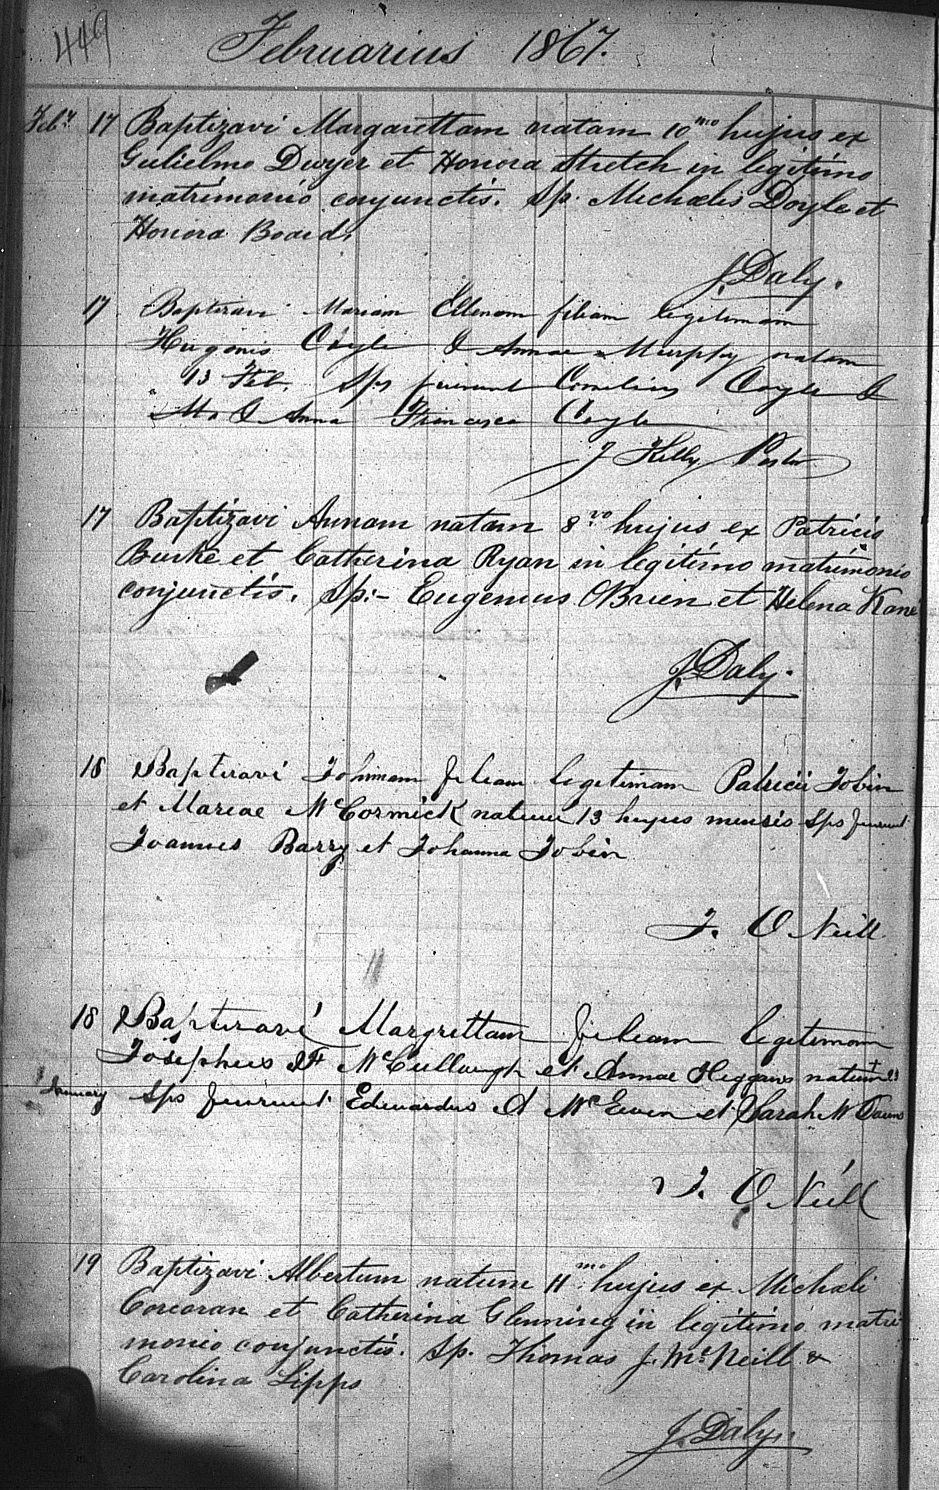 449
Februarius 1867.
Feby 17 Baptizavi Margarettam natam 10mo hujus ex
Gulielmo Dwyer et Honora Stretch in legitimo
matrimonio conjunctis. Sp. Michælis Doyle et
Honora Board.
J. Daly.
17 Baptizavi Mariam Ellenam filiam legitimam
Hugonis Coyle & Annae Murphy natam
13 Feb. Sps fuerunt Cornelius Coyle &
Anna Francisca Coyle
J Kelly Pastor
17 Baptizavi Annam natam 8vo hujus ex Patricis
Burke et Catherina Ryan in legitimo matrimonio
conjunctis. Sp:- Eugenius OBrien et Helena Kane
J. Daly.
18 Baptizavi Johannam filiam legitimam Patricii Tobin
et Mariae McCormick natum 13 hujus mensis Sps fuerunt
Joannes Barry et Johanna Tobin
J. O Neill
18 Baptizavi Margrettam filiam legitimam
Josephus McCullough et Annae Higgans natum
January Sps fuerunt Eduardus A McEwen et Sarah
J. O Neill
19 Baptizavi Albertum natum 11mo hujus ex Michali
Corcoran et Catherina Glenning in legitimo matri
monio conjunctis. Sp. Thomas J. McNeill &
Carolina Lipps
J. Daly.